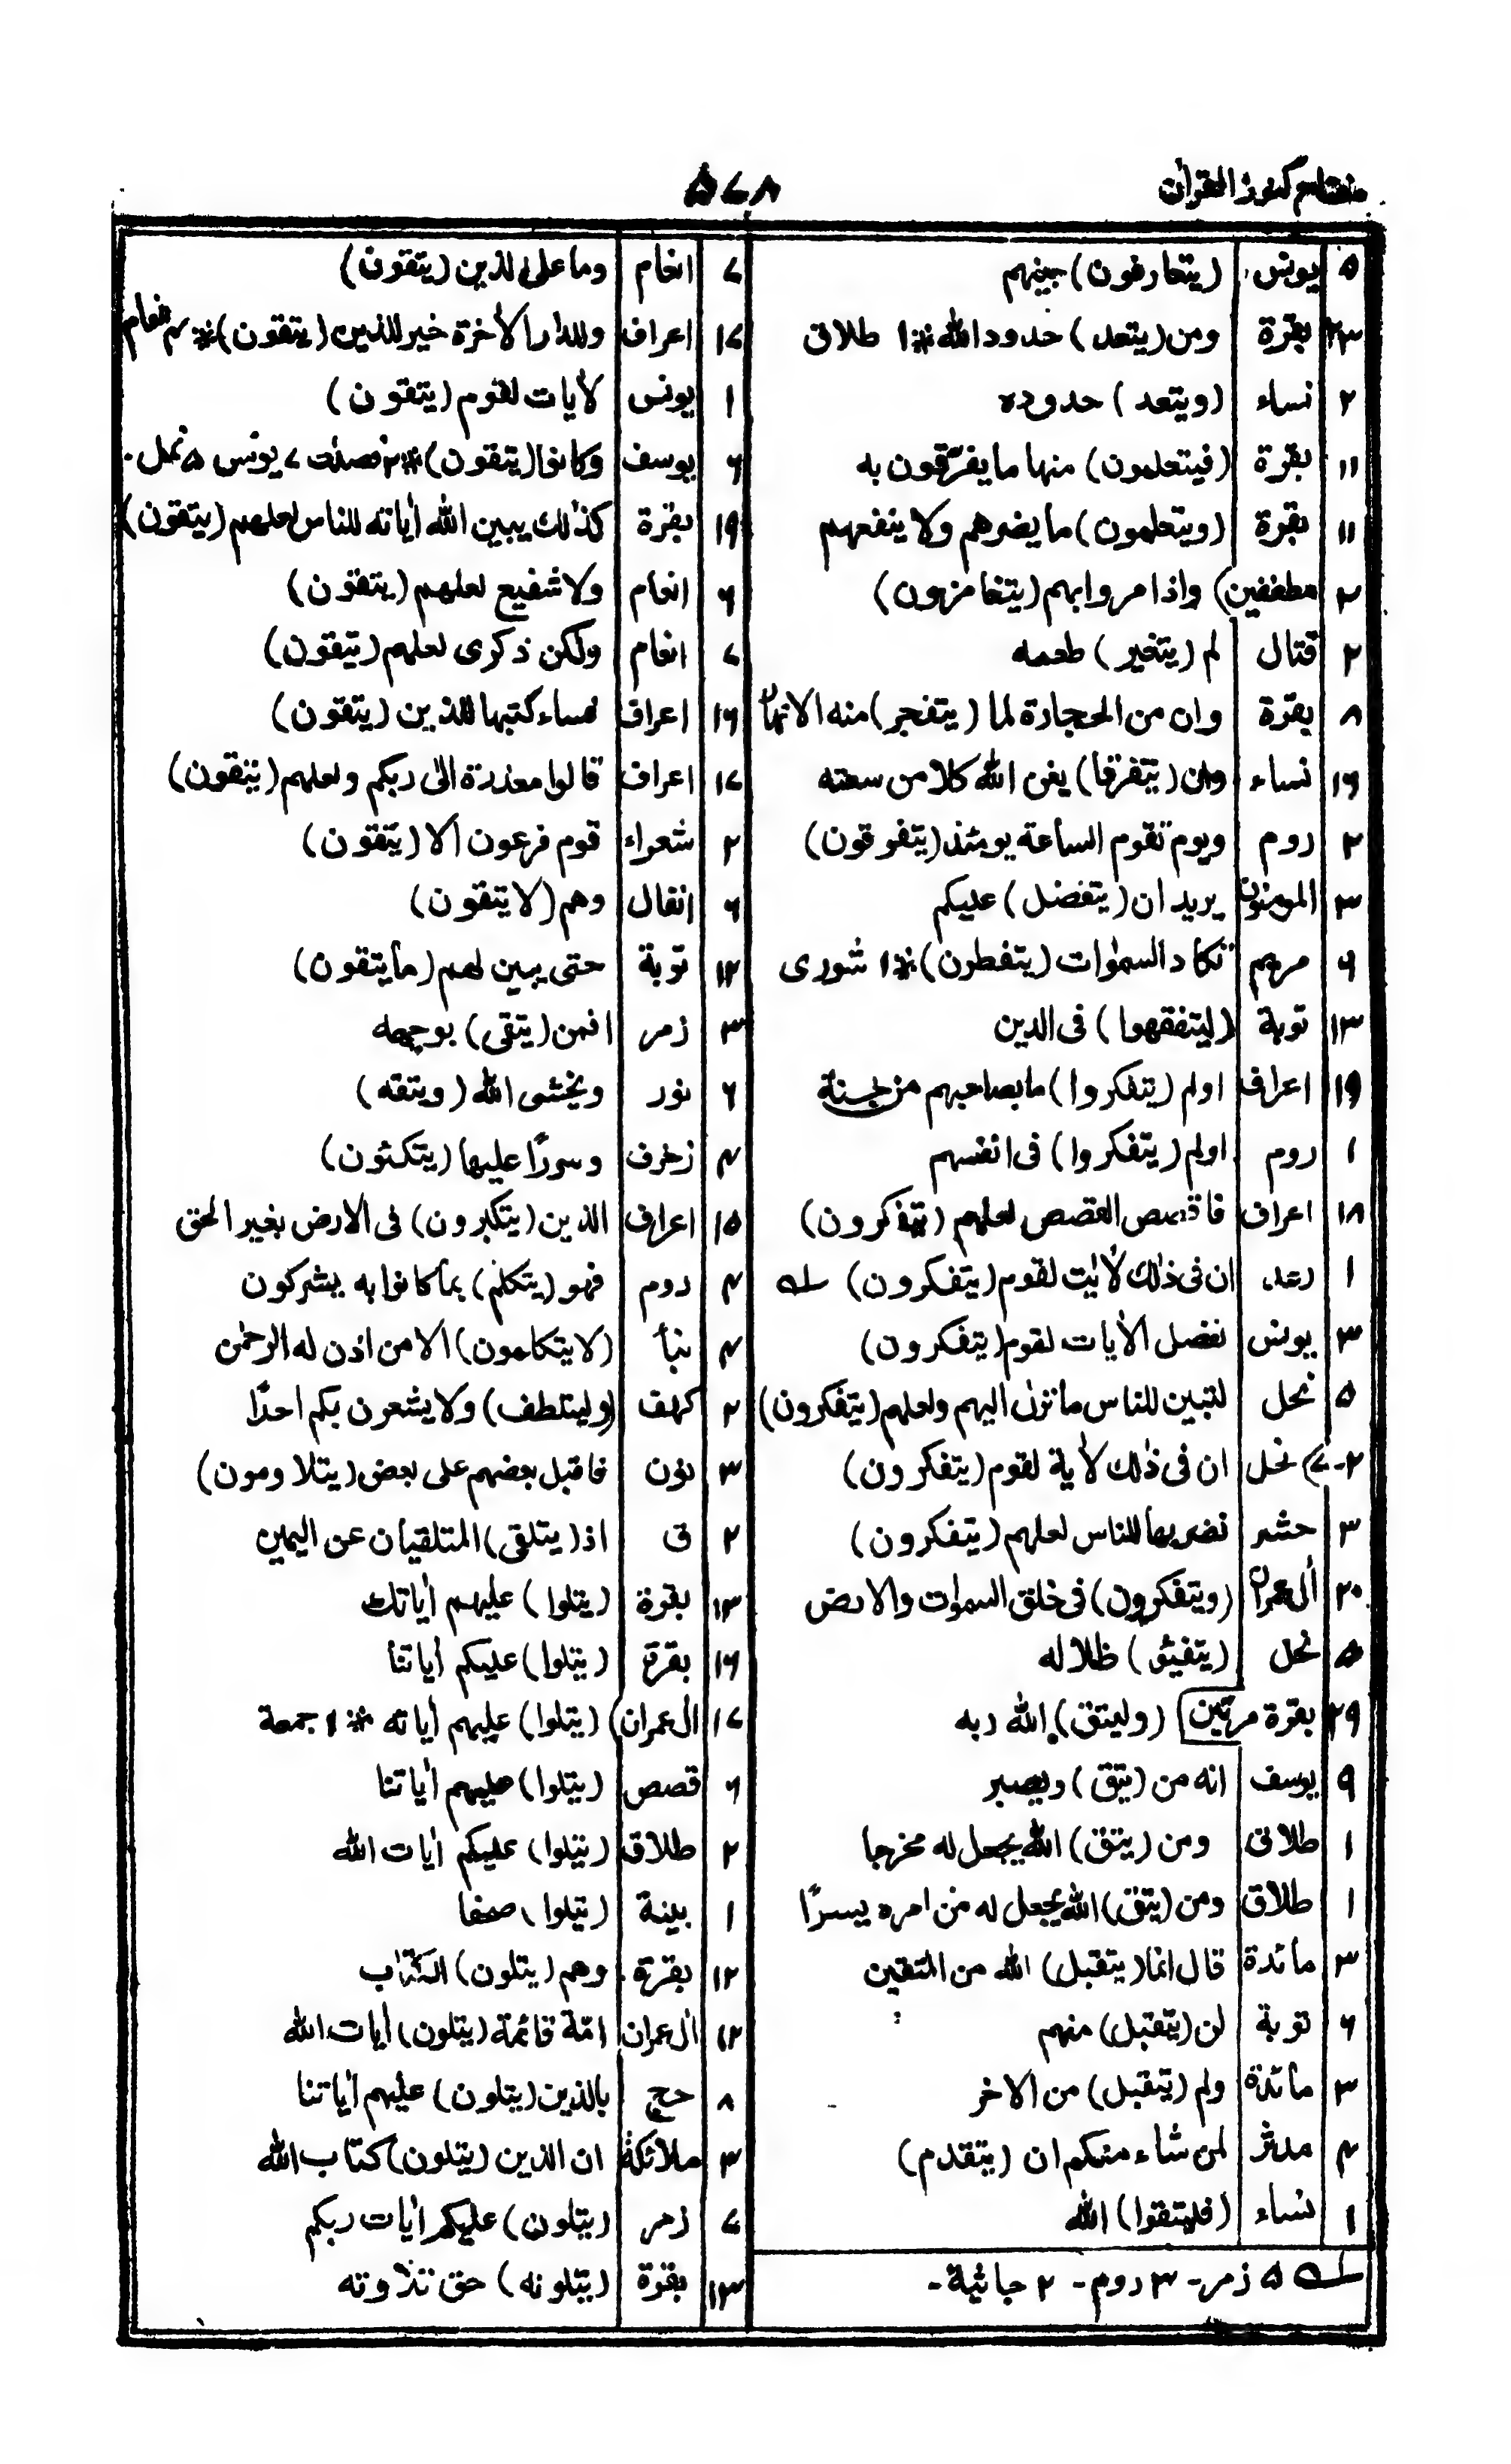 مفتاح كنوز القرآن
۵۷۸
۵ يونس (يتعارفون) بينهم
۲۳ بقرة ومن (يتعد) حدود الله * ۱ طلاق
۲ نساء (ويتعد) حدوده
۱۱ بقرة (فيتعلمون) منها ما يفرّقون به
۱۱ بقرة (ويتعلمون) ما يضرهم ولا ينفعهم
۲ مطففين) واذا مروا بهم (يتغامزون)
۲ قتال لم (يتغير) طعمه
۸ بقرة وان من الحجارة لما (يتفجر) منه الانهار
۱۶ نساء وان (يتفرقا) يغن الله كلا من سعته
۲ روم ويوم تقوم الساعة يومئذ (يتفرقون)
۳ المومنون يريد ان (يتفضل) عليكم
۶ مريم تكاد السمٰوات (يتفطرن) * ۱ شورى
۱۳ توبة (ليتفقهوا) فى الدين
۱۹ اعراف اولم (يتفكروا) ما بصاحبهم من جنة
۱ روم اولم (يتفكروا) فى انفسهم
۱۸ اعراف فاقصص القصص لعلهم (يتفكرون)
۱ رعد ان فى ذٰلك لأيٰت لقوم (يتفكرون) لـه
۳ يونس نفصل الأيات لقوم (يتفكرون)
۵ نحل لتبين للناس ما نزل اليهم ولعلهم (يتفكرون)
۲-۷) نحل ان فى ذٰلك لأية لقوم (يتفكرون)
۳ حشر نضربها للناس لعلهم (يتفكرون)
۲۰ أل عمران (ويتفكرون) فى خلق السمٰوات والارض
۵ نحل (يتفيؤ) ظلاله
۲۹ بقرة مرتين (وليتق) الله ربه
۹ يوسف انه من (يتق) ويصبر
۱ طلاق ومن (يتق) الله يجعل له مخرجا
۱ طلاق ومن (يتق) الله يجعل له من امره يسرًا
۳ مائدة قال انما (يتقبل) الله من المتقين
۶ توبة لن (يتقبل) منهم
۳ مائدة ولم (يتقبل) من الاخر
۲ مدثر لمن شاء منكم ان (يتقدم)
۱ نساء (فليتقوا) الله
لـه ۵ زمر- ۳ روم- ۲ جاثية-
۷ انعام وما على الذين (يتقون)
۱۷ اعراف وللدار الأخرة خير للذين (يتقون) * ۴ انعام
۱ يونس لأيات لقوم (يتقون)
۶ يوسف وكانوا (يتقون) * ۲ فصلت ۷ يونس ۵ نمل
۱۹ بقرة كذٰلك يبين الله أياته للناس لعلهم (يتقون)
۶ انعام ولا شفيع لعلهم (يتقون)
۷ انعام ولكن ذكرى لعلهم (يتقون)
۱۶ اعراف فساءكتبها للذين (يتقون)
۱۷ اعراف قالوا معذرة الى ربكم ولعلهم (يتقون)
۲ شعراء قوم فرعون ألا (يتقون)
۶ انفال وهم (لا يتقون)
۱۲ توبة حتى يبين لهم (ما يتقون)
۳ زمر افمن (يتقى) بوجهه
۶ نور ويخشى الله (ويتقه)
۴ زخرف وسررًا عليها (يتكئون)
۱۵ اعراف الذين (يتكبرون) فى الارض بغير الحق
۴ روم فهو (يتكلم) بما كانوا به يشركون
۴ نبأ (لا يتكلمون) الا من اذن له الرحمٰن
۲ كهف (وليتلطف) ولا يشعرن بكم احدًا
۳ نون فاقبل بعضهم على بعض (يتلاومون)
۲ ق اذ (يتلقى) المتلقيان عن اليمين
۱۳ بقرة (يتلوا) عليهم أياتك
۱۶ بقرة (يتلوا) عليكم أياتنا
۱۷ أل عمران) (يتلوا) عليهم أياته * ۱ جمعة
۶ قصص (يتلوا) عليهم أياتنا
۲ طلاق (يتلوا) عليكم أيات الله
۱ بينة (يتلوا) صحفا
۱۲ بقرة وهم (يتلون) الكتٰب
۱۲ أل عمران امّة قائمة (يتلون) أيات الله
۸ حج بالذين (يتلون) عليهم أياتنا
۳ ملائكة ان الذين (يتلون) كتاب الله
۷ زمر (يتلون) عليكم أيات ربكم
۱۳ بقرة (يتلونه) حق تلاوته